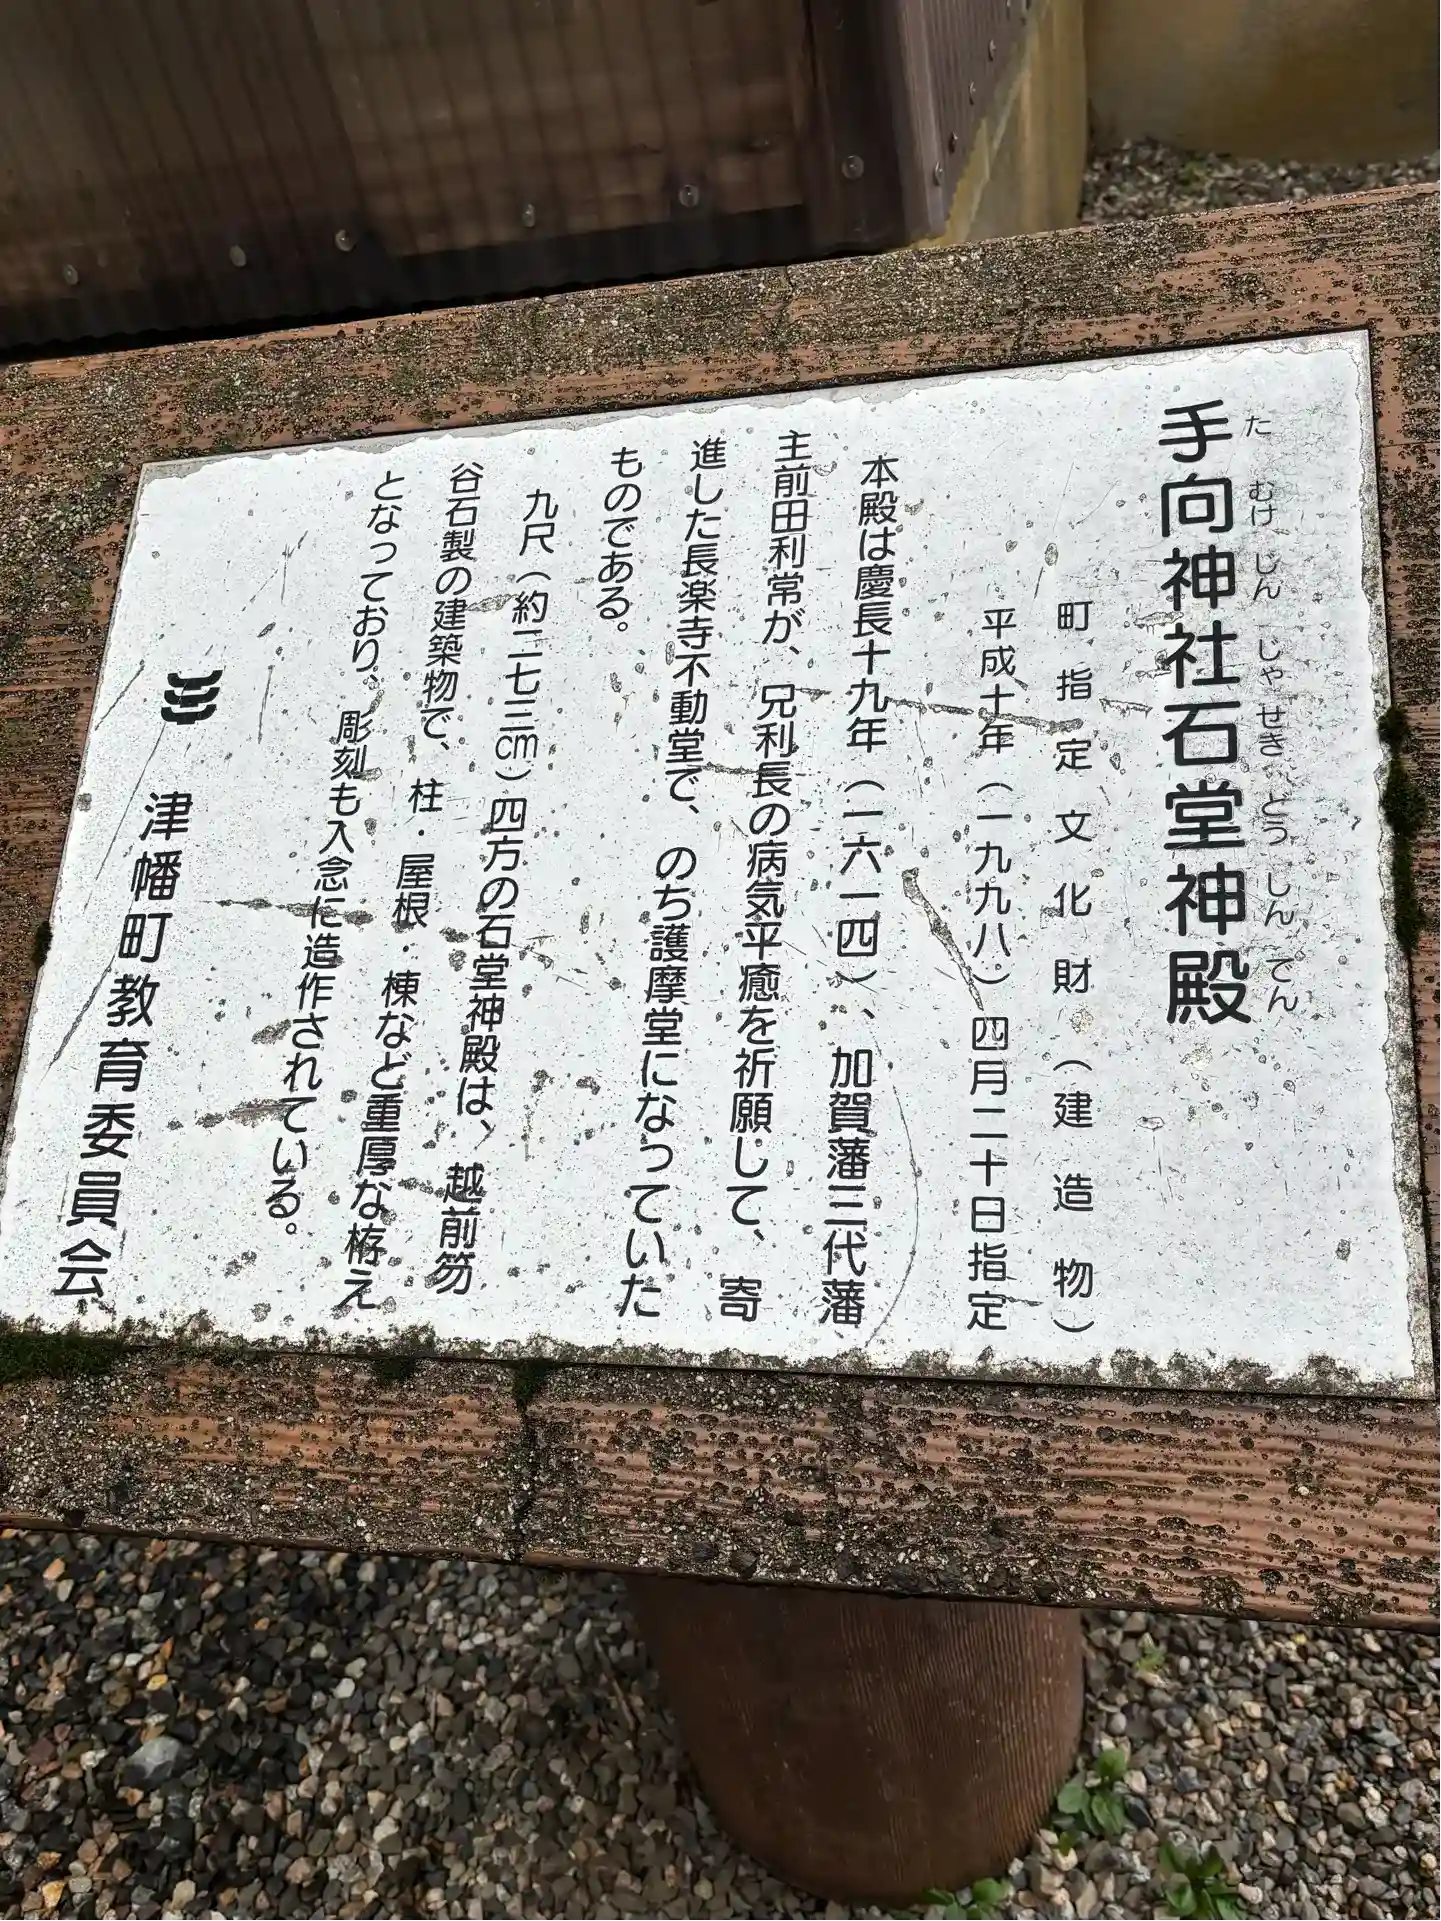 手向神社石堂神殿
た むけ じん じゃ せき どう しん でん
町指定文化財（建造物）
平成十年（一九九八）四月二十日指定
本殿は慶長十九年（一六一四）、加賀藩三代藩
主前田利常が、兄利長の病気平癒を祈願して、寄
進した長楽寺不動堂で、のち護摩堂になっていた
ものである。
九尺（約二七三㎝）四方の石堂神殿は、越前笏
谷石製の建築物で、柱・屋根・棟など重厚な栫え
となっており、彫刻も入念に造作されている。
津幡町教育委員会